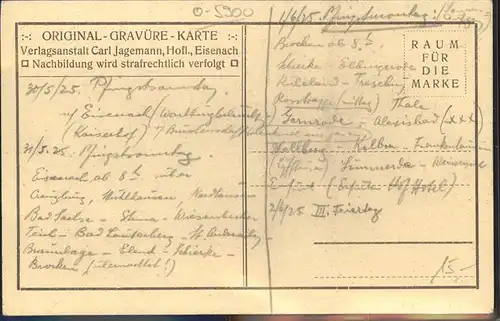 O-5900
ORIGINAL-GRAVÜRE-KARTE
Verlagsanstalt Carl Jagemann, Hofl., Eisenach
Nachbildung wird strafrechtlich verfolgt
30/5/25. Pfingstsamstag
n/ Eisenach (Wartburg
(Kaiserhof)
31/5.25. Pfingstsonntag
Eisenach ab 8 über
Creuzburg, Mühlhausen, Nordhausen
Bad Sachsa - Wiesenbecker
Teich - Bad Lauterberg - St. Andreasberg
Braunlage - Elend - Schierke -
Brocken (übernachtet!)
1/6/25 Pfingstmontag
Brocken ab 8
Schierke - Elbingerode
Rübeland - Treseburg
Rosstrappe (mittag) Thale
Gernrode - Alexisbad (xxx)
Stollberg - Kelbra - Frankenhausen
(Kyffhäuser) Sömmerda -
Erfurt ( Hof Hotel)
2/6/25 III. Feiertag
RAUM
FÜR
DIE
MARKE
15,-